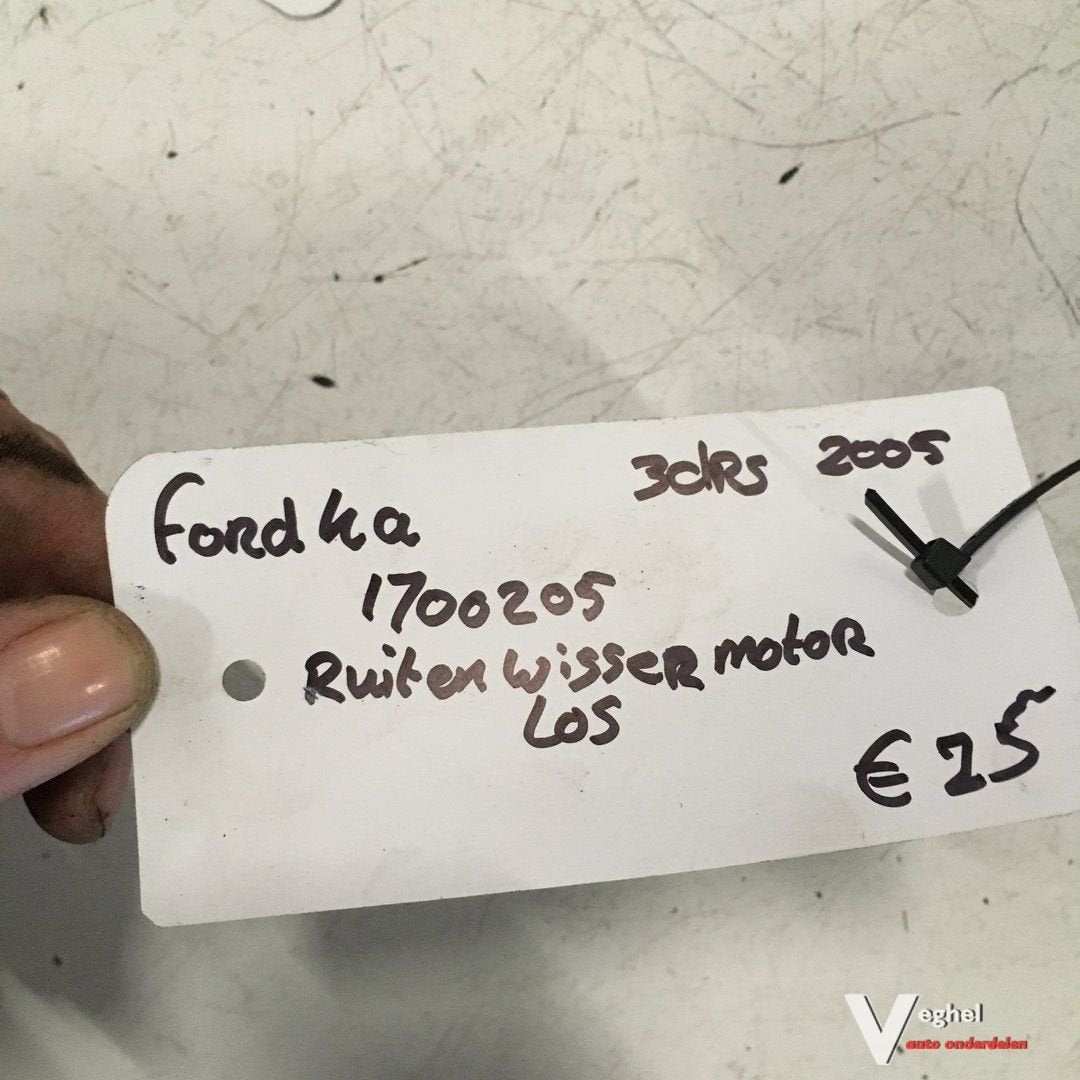 3dRs 2005
Ford ka
1700205
Ruiten wisser motor
Los
€ 25
Veghel
auto onderdelen